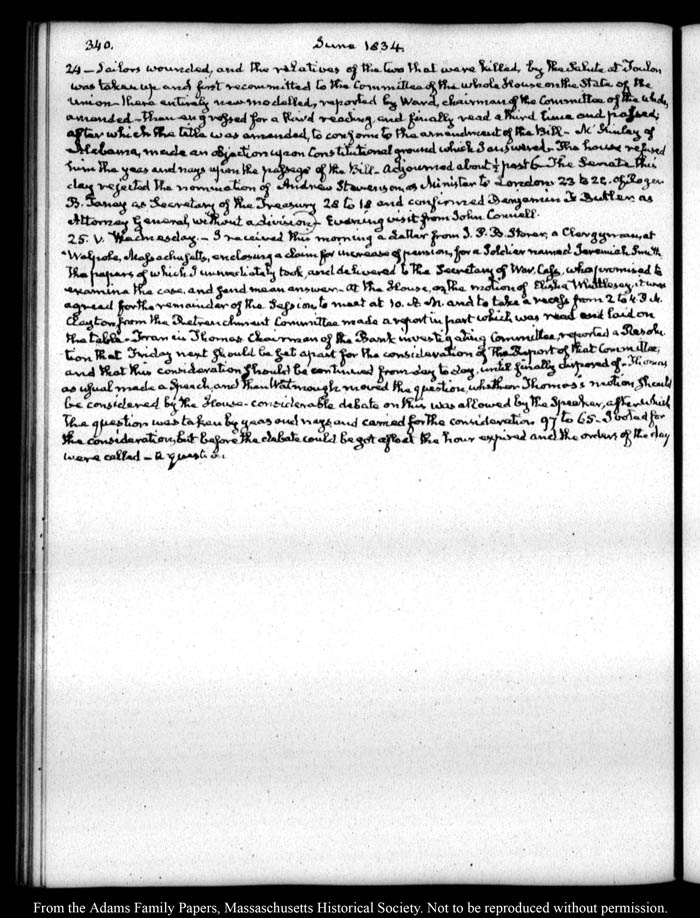 340. June 1834.
24 — Sailors wounded, and the relatives of the two that were killed, by the Salute at Toulon
was taken up and first recommitted to the Committee of the whole House on the State of the
Union — there entirely new modelled, reported by Ward, chairman of the Committee of the whole,
amended — then engrossed for a third reading, and finally read a third time and passed;
after which the title was amended, to conform to the amendment of the Bill — McKinley of
Alabama, made an objection upon Constitutional ground which I answered — The house refused
him the yeas and nays upon the passage of the Bill — Adjourned about ½ past 6. The Senate this
day rejected the nomination of Andrew Stevenson as Minister to London 23 to 22. of Roger
B. Taney as Secretary of the Treasury 28 to 18 and confirmed Benjamin F. Butler as
Attorney General, without a division — Evening visit from John Connell.
25. V. Wednesday — I received this morning a Letter from J. P. B. Storer, a Clergyman, at
Walpole, Massachusetts, enclosing a claim for increase of pension, for a Soldier named Jeremiah Smith.
The papers of which I immediately took, and delivered to the Secretary of War, Cass, who promised to
examine the case, and send me an answer — At the House, on the motion of Elisha Whittlesey, it was
agreed for the remainder of the Session, to meet at 10. A.M. and to take a recess from 2 to 4 P.M.
Clayton, from the Retrenchment Committee made a report in part which was read and laid on
the table — Francis Thomas Chairman of the Bank investigating Committee, reported a Resolu-
tion that Friday next should be set apart for the consideration of the Report of that Committee;
and that this consideration should be continued from day to day, until finally disposed of — Thomas
as usual made a Speech, and then Watmough moved the question, whether Thomas's motion, should
be considered by the House — considerable debate on this was allowed by the Speaker, after which
the question was taken by yeas and nays, and carried for the consideration 97 to 65 — I voted for
the consideration, but before the debate could be got afloat the hour expired and the orders of the day
were called — A question
From the Adams Family Papers, Massachusetts Historical Society. Not to be reproduced without permission.